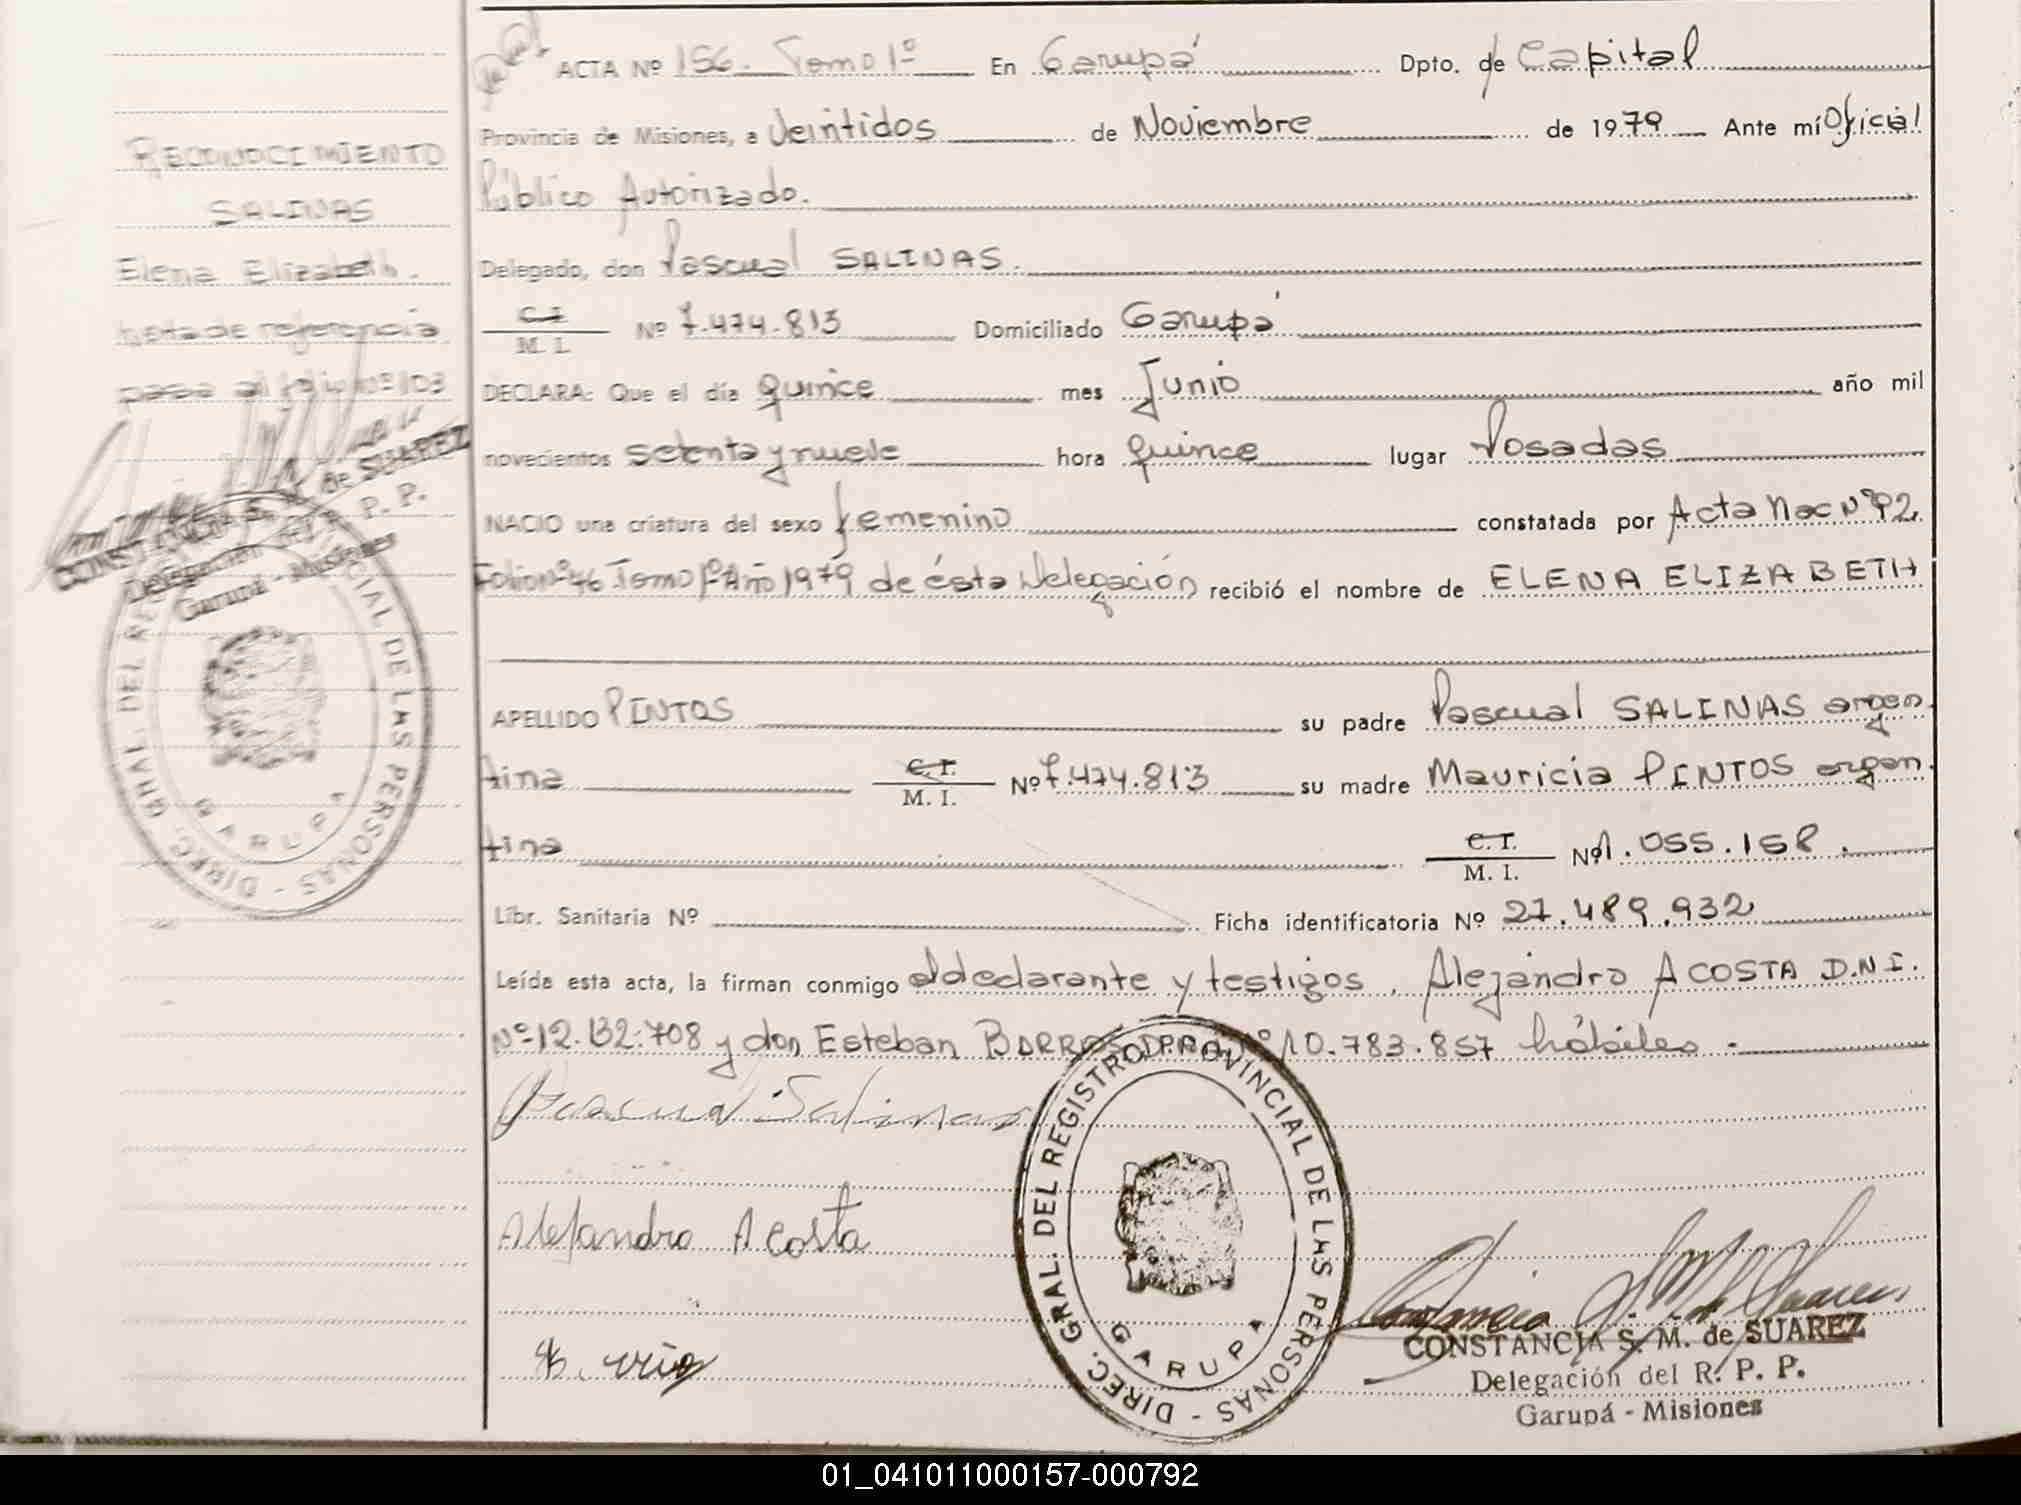 ACTA Nº 156. Tomo 1º En Garupá Dpto. de Capital
Provincia de Misiones, a Veintidos de Noviembre de 1979 Ante mí Oficial
Público Autorizado.
Delegado, don Pascual SALINAS.
C. I.
M. I. Nº 7.474.813 Domiciliado Garupá
DECLARA: Que el día quince mes Junio año mil
novecientos setenta y nueve hora quince lugar Posadas
NACIO una criatura del sexo femenino constatada por Acta Nac Nº 92
Folio Nº 46 Tomo 1º Año 1979 de ésta Delegación recibió el nombre de ELENA ELIZABETH
APELLIDO PINTOS su padre Pascual SALINAS argen
tina C. I.
M. I. Nº 7.474.813 su madre Mauricia PINTOS argen
tina C. I.
M. I. Nº 1.055.158.
Libr. Sanitaria Nº Ficha identificatoria Nº 27.489.932
Leída esta acta, la firman conmigo el declarante y testigos, Alejandro ACOSTA D.N.I.
Nº 12.132.708 y don Esteban Nº 10.783.857 hábiles.
Pascual Salinas
Alejandro Acosta
DIREC. GRAL. DEL REGISTRO PROVINCIAL DE LAS PERSONAS -
GARUPA
CONSTANCIA S. M. de SUAREZ
Delegación del R. P. P.
Garupá - Misiones
RECONOCIMIENTO
SALINAS
Elena Elizabeth.
Nota de referencia
pasa al folio
CONSTANCIA S. M. de SUAREZ
Delegación del R. P. P.
Garupá - Misiones
DIREC. GRAL. DEL REGISTRO PROVINCIAL DE LAS PERSONAS -
GARUPA
01_041011000157-000792